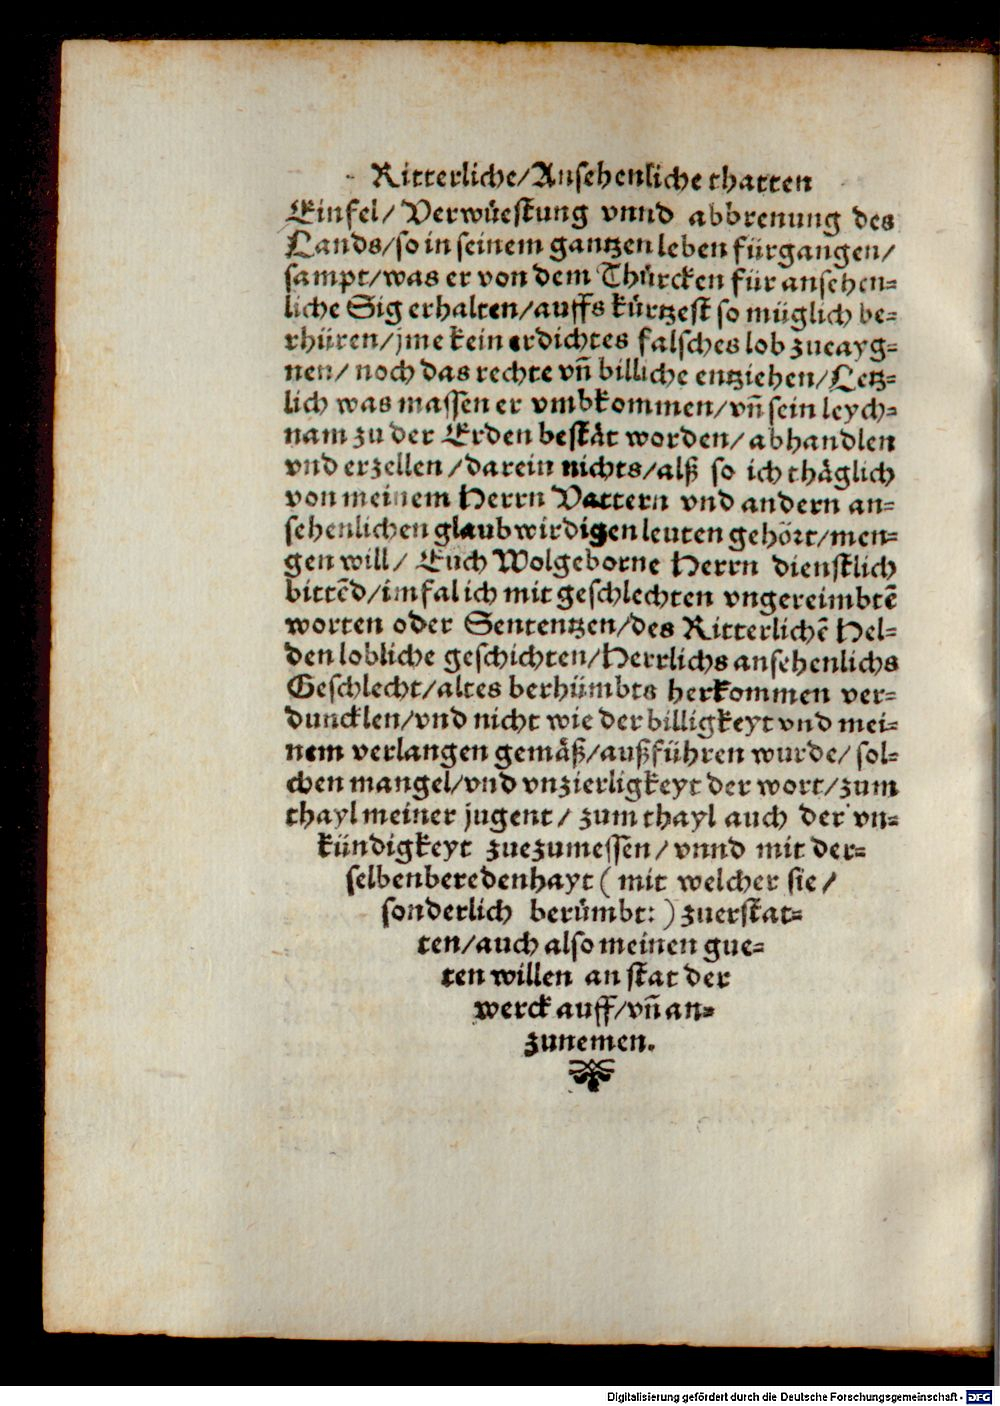 Ritterliche/Ansehenliche thatten
Einfel/ Verwüestung vnnd abbrenung des
Lands/so in seinem gantzen leben fürgangen/
sampt/was er von dem Thürcken für ansehen⸗
liche Sig erhalten/auffs kürtzest so müglich be⸗
rhüren/jme kein erdichtes falsches lob zueayg⸗
nen/ noch das rechte vñ billiche entziehen/Letz⸗
lich was massen er vmbkommen/vñ sein leych⸗
nam zu der Erden bestät worden/abhandlen
vnd erzellen/darein nichts/alß so ich thäglich
von meinem Herrn Vattern vnd andern an⸗
sehenlichen glaubwirdigen leuten gehört/men⸗
gen will/ Euch Wolgeborne Herrn dienstlich
bittēd/im fal ich mit geschlechten vngereimbtē
worten oder Sententzen/des Ritterlichē Hel⸗
den lobliche geschichten/Herrlichs ansehenlichs
Geschlecht/altes berhümbts herkommen ver⸗
duncklen/vnd nicht wie der billigkeyt vnd mei⸗
nem verlangen gemäß/außführen wurde/ sol⸗
chen mangel/vnd vnzierligkeyt der wort/zum
thayl meiner jugent/ zum thayl auch der vn⸗
kündigkeyt zuezumessen/ vnnd mit der⸗
selben beredenhayt ( mit welcher sie /
sonderlich berümbt: ) zuerstat⸗
ten/auch also meinen gue⸗
ten willen an stat der
werck auff/vñ an⸗
zunemen.
Digitalisierung gefördert durch die Deutsche Forschungsgemeinschaft - DFG